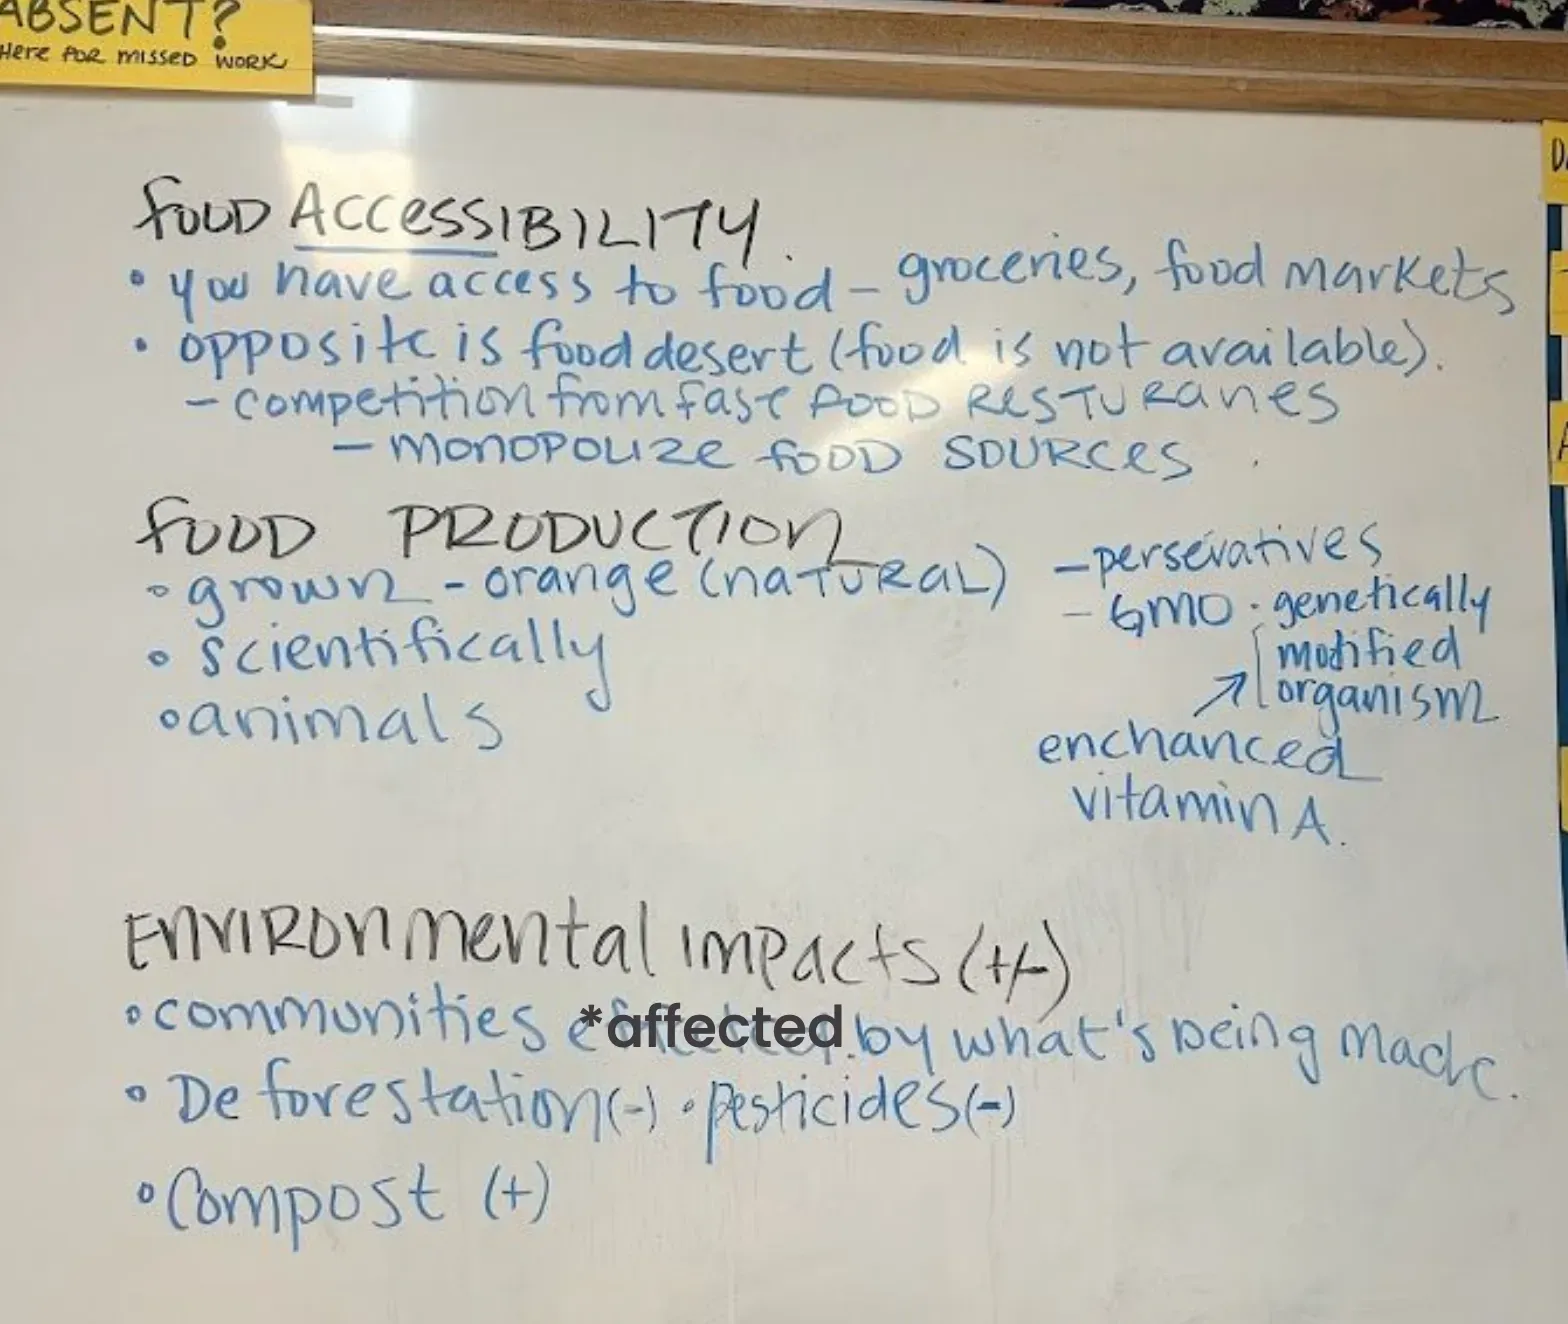 ABSENT?
Here FOR MISSED WORK
FOOD ACCESSIBILITY
• you have access to food - groceries, food markets
• opposite is food desert (food is not available).
- competition from fast FOOD RESTURANES
- MONOPOLIZE FOOD SOURCES
FOOD PRODUCTION
• grown - orange (natural)
• scientifically
• animals
- persevatives
- GMO · genetically
modified
organism
enchanced
vitamin A.
ENVIRONmental IMPACTS (+/-)
• communities *affected by what's being made.
• Deforestation (-) • pesticides (-)
• Compost (+)